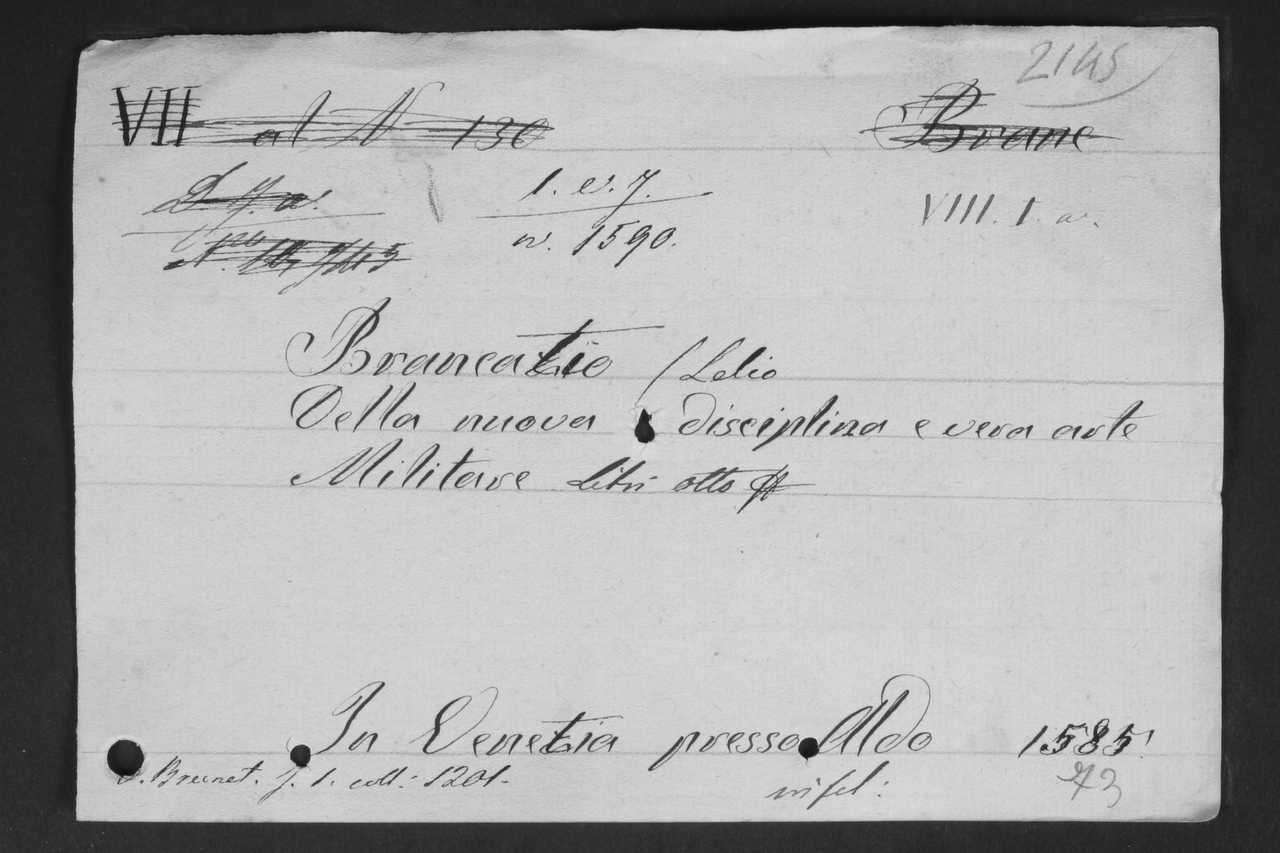 2145
VII al N 130 Branc
VIII. I. a.
n. 1590.
Brancatio (Lelio
Della nuova disciplina e vera arte
Militare Libri otto
In Venetia presso Aldo 1585.
v. Brunet. f. 1. coll: 1201. in fol: